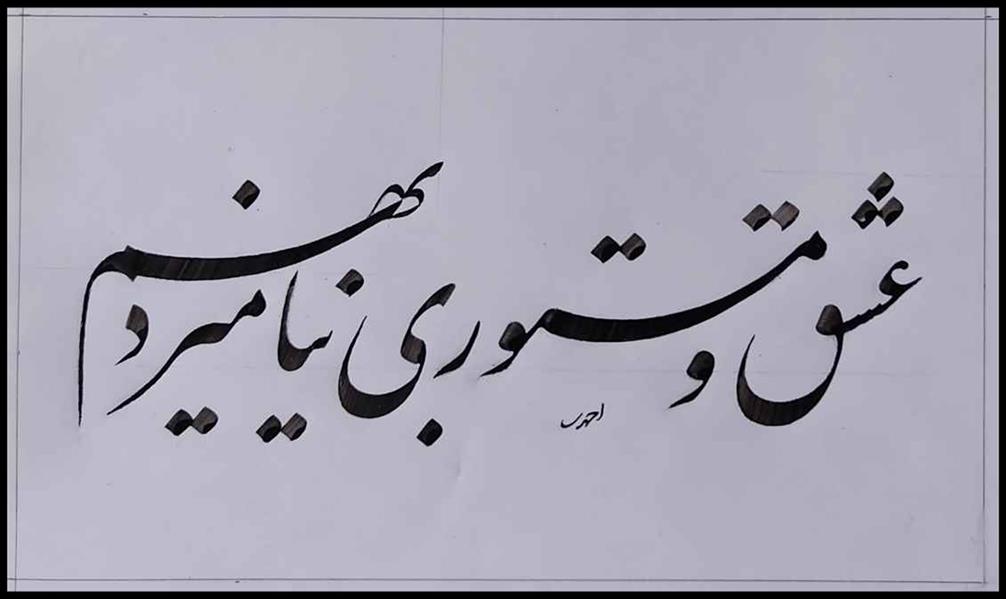 عشق و مستوری نیامیزد بهم